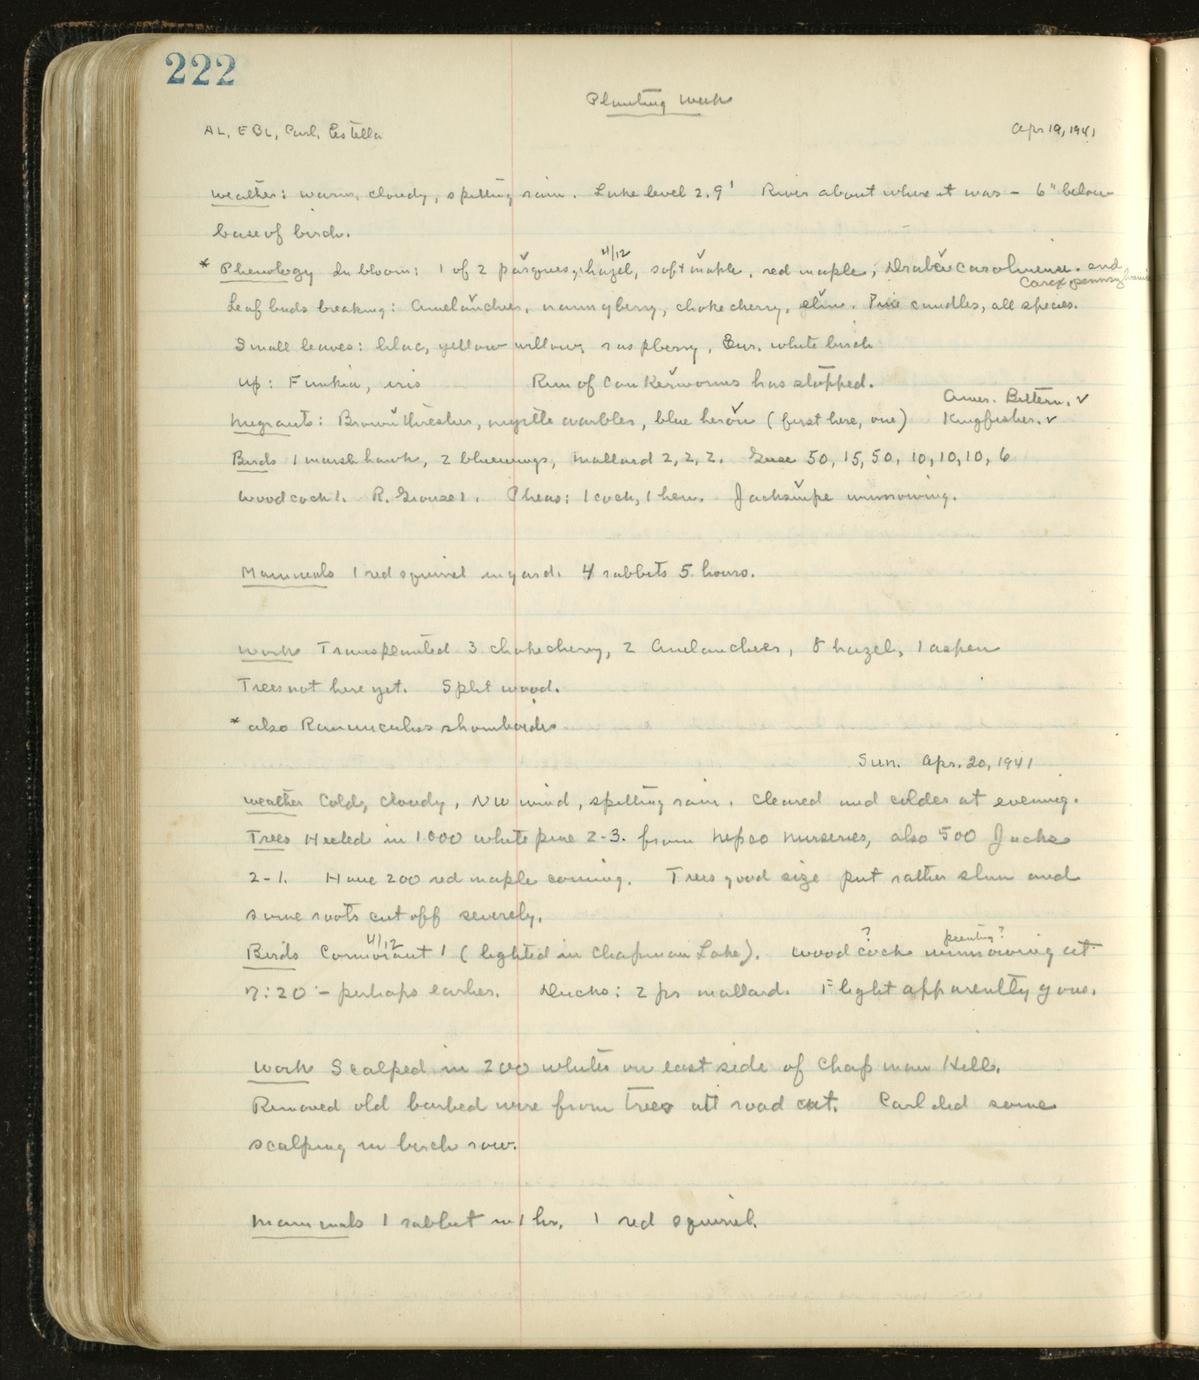 222
Planting Week
AL, EBL, Carl, Estella Apr 19, 1941
Weather: warm, cloudy, spitting rain. Lake level 2.9' River about where it was – 6" below
base of birch.
* Phenology In bloom: 1 of 2 pasques, hazel, 4/12 soft maple, red maple, Draba caroliniana. and
Carex pennsylvanica
Leaf buds breaking: Amelanchier, nannyberry, chokecherry, elm. Pine candles, all species.
Small leaves: lilac, yellow willow, raspberry, Eur. white birch
Up: Funkia, iris Run of cankerworms has stopped.
Amer. Bittern. ✓
Migrants: Brown thrasher, myrtle warbler, blue heron (first here, one) Kingfisher. ✓
Birds 1 marsh hawk, 2 bluewings, Mallard 2, 2, 2. Geese 50, 15, 50, 10, 10, 10, 6
Woodcock 1. R. Grouse 1. Pheas: 1 cock, 1 hen. Jacksnipe winnowing.
Mammals 1 red squirrel in yard. 4 rabbits 5 hours.
Work Transplanted 3 chokecherry, 2 Amelanchier, 8 hazel, 1 aspen
Trees not here yet. Split wood.
* also Ranunculus rhomboideus
Sun. Apr. 20, 1941
Weather Cold, cloudy, NW wind, spitting rain. Cleared and colder at evening.
Trees Heeled in 1000 white pine 2-3. from Nepco Nurseries, also 500 Jacks
2-1. Have 200 red maple coming. Trees good size but rather slim and
some roots cut off severely.
4/12 ? peenting?
Birds Cormorant 1 (lighted in Chapman Lake). Woodcock winnowing at
7:20 – perhaps earlier. Ducks: 2 prs mallard. Flight apparently gone.
Work Scalped in 200 whites on east side of Chapman Hill.
Removed old barbed wire from trees at road cut. Carl did some
scalping in birch row.
Mammals 1 rabbit in 1 hr. 1 red squirrel.